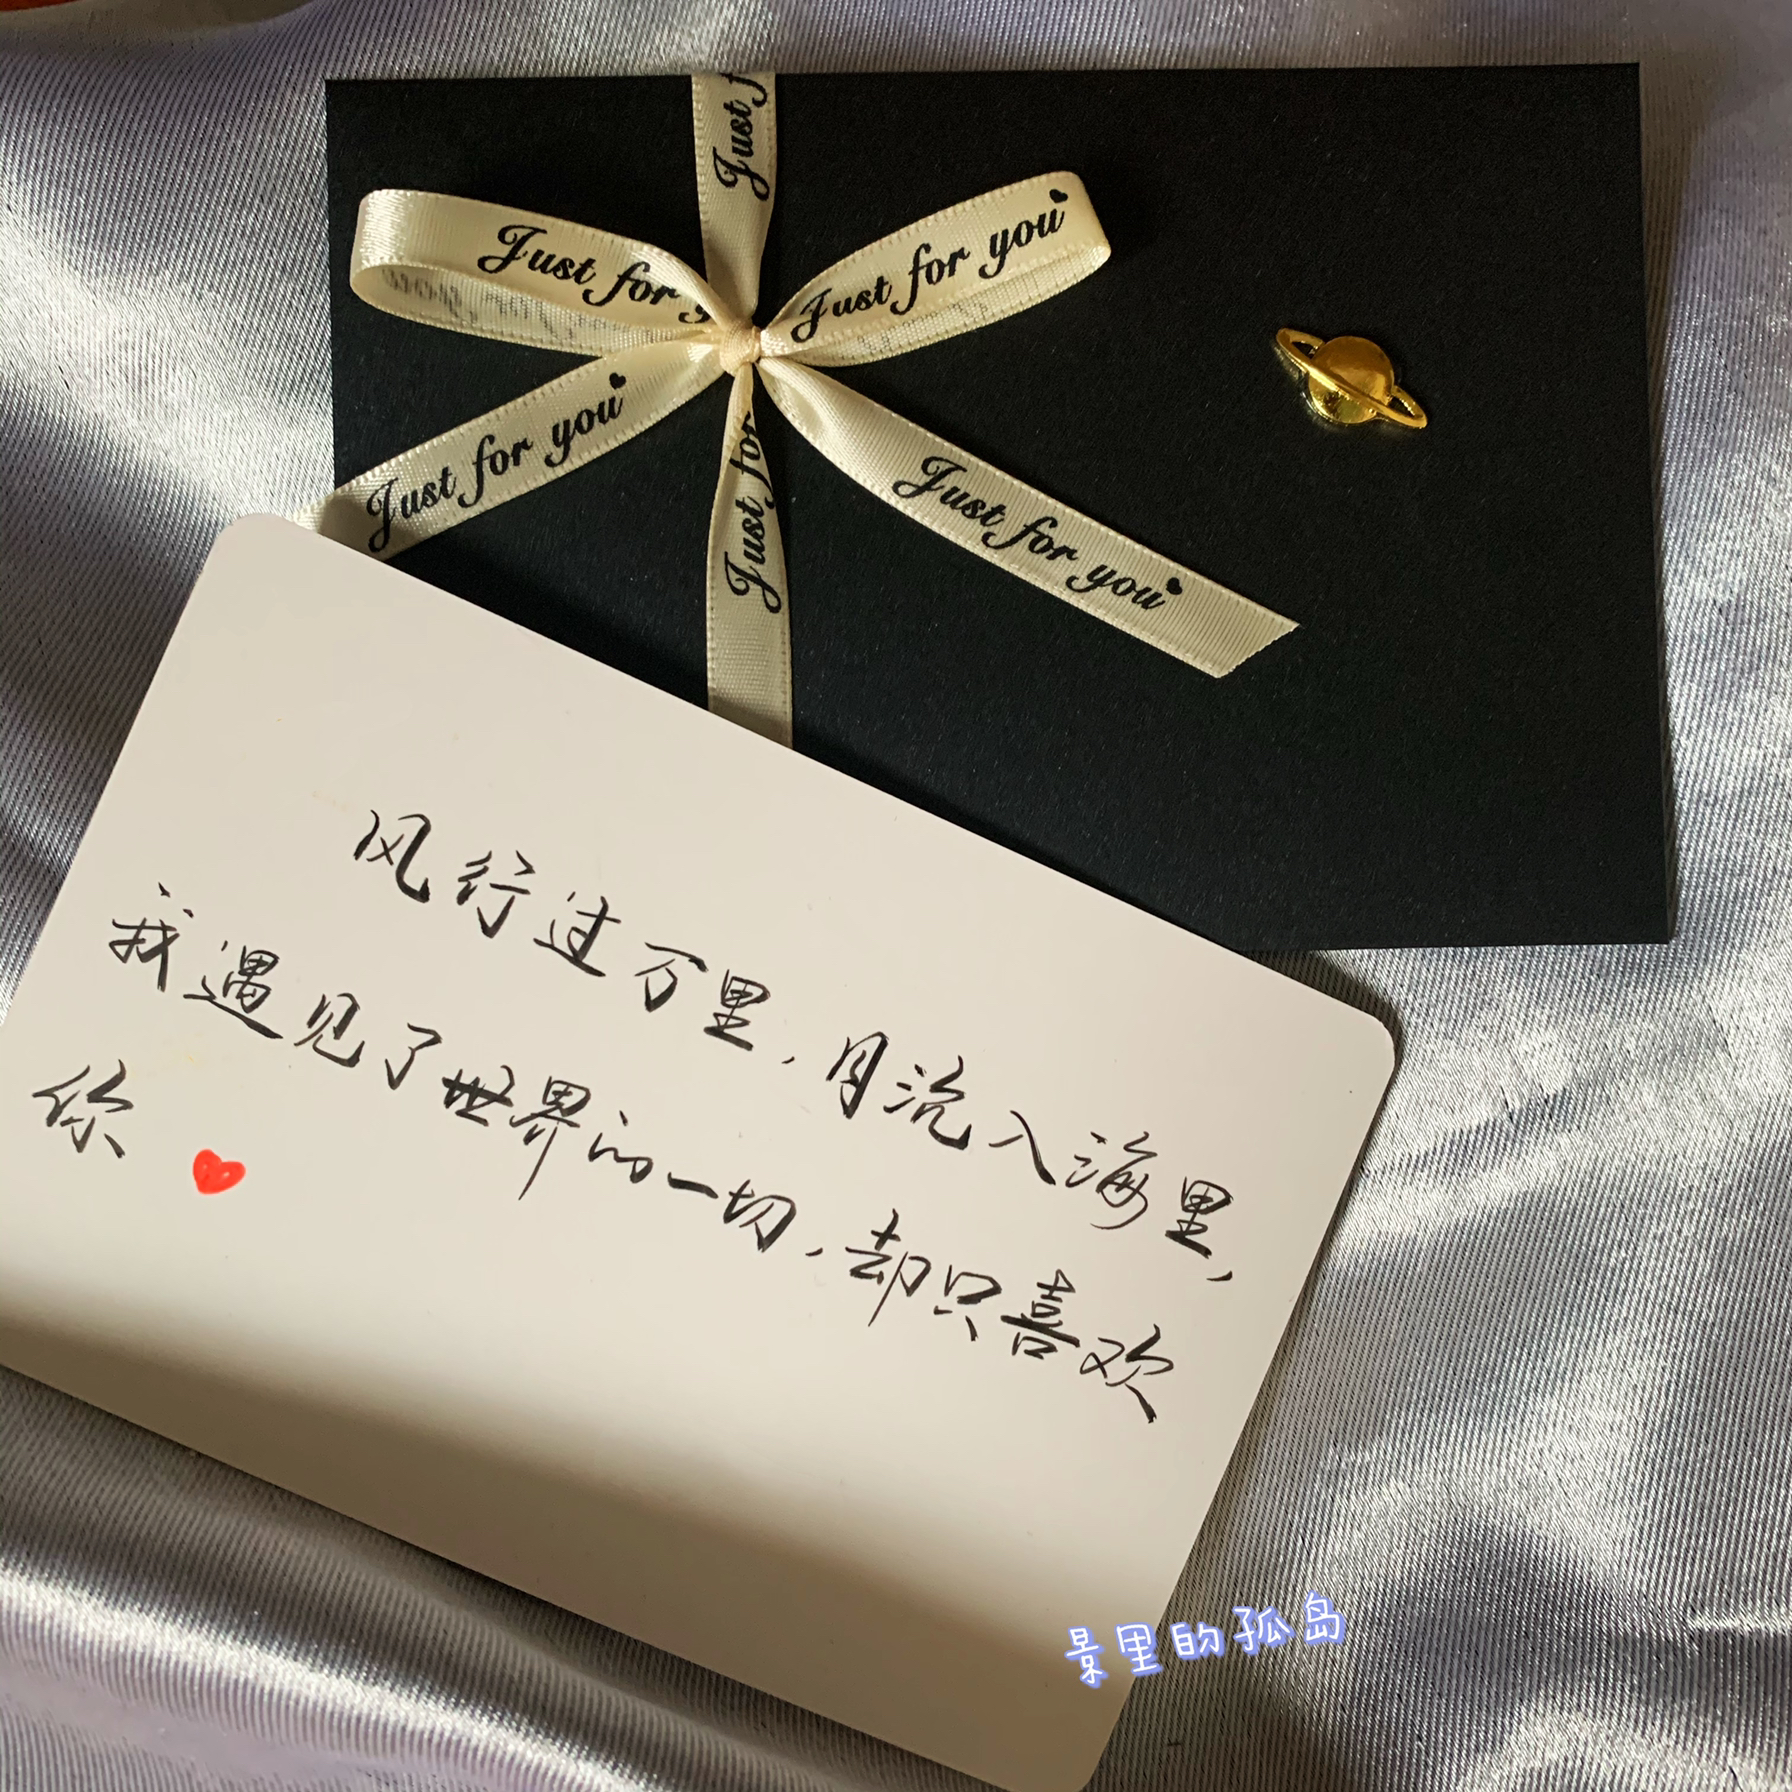 Just f
Just for y
Just for you
Just for you
Just for
Just for you
风行过万里,月流入海里,
我遇见了世界的一切,却只喜欢
你
景里的孤岛